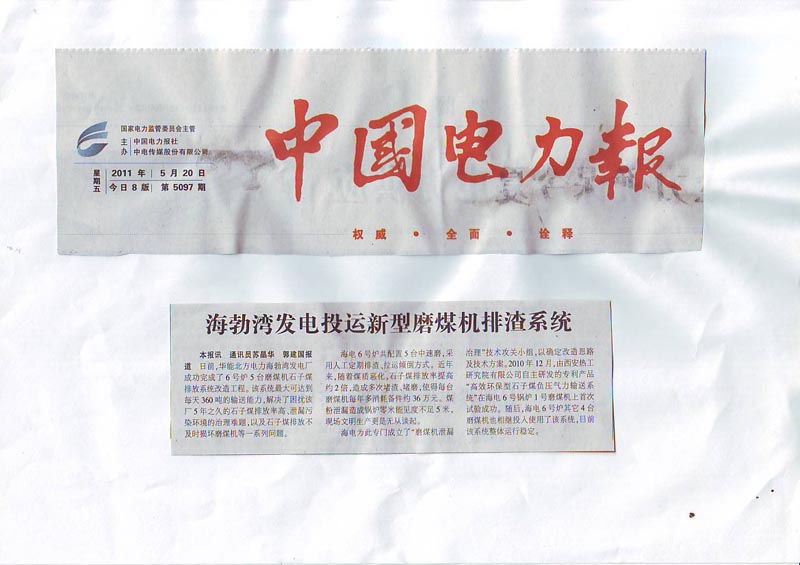 国家电力监管委员会主管
主 中国电力报社
办 中电传媒股份有限公司
星期五
2011 年 5 月 20 日
今日 8 版 第 5097 期
中国电力報
权威 · 全面 · 诠释
海勃湾发电投运新型磨煤机排渣系统
本报讯 通讯员苏晶华 郭建国报
道 日前,华能北方电力海勃湾发电厂
成功完成了 6 号炉 5 台磨煤机石子煤
排放系统改造工程。该系统最大可达到
每天 360 吨的输送能力,解决了困扰该
厂 5 年之久的石子煤排放率高、泄漏污
染环境的治理难题,以及石子煤排放不
及时损坏磨煤机等一系列问题。
海电 6 号炉共配置 5 台中速磨,采
用人工定期排渣、拉运倾倒方式。近年
来,随着煤质恶化,石子煤排放率提高
约 2 倍,造成多次堵渣、堵磨,使得每台
磨煤机每年多消耗备件约 36 万元。煤
粉泄漏造成锅炉零米能见度不足 5 米,
现场文明生产更是无从谈起。
海电为此专门成立了“磨煤机泄漏
治理”技术攻关小组,以确定改造思路
及技术方案。2010 年 12 月,由西安热工
研究院有限公司自主研发的专利产品
“高效环保型石子煤负压气力输送系
统”在海电 6 号锅炉 1 号磨煤机上首次
试验成功。随后,海电 6 号炉其它 4 台
磨煤机也相继投入使用了该系统,目前
该系统整体运行稳定。